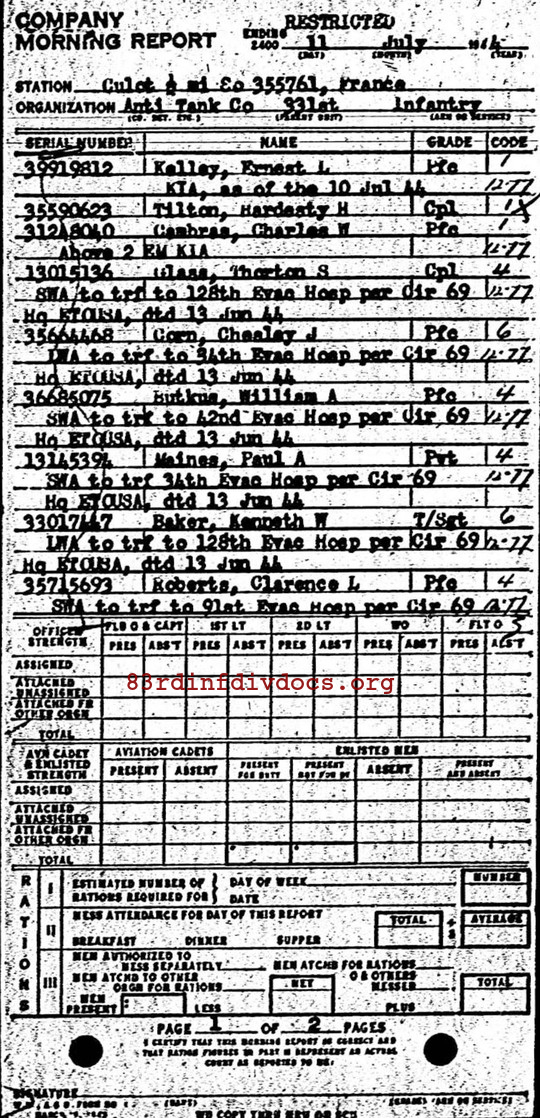 COMPANY RESTRICTED
MORNING REPORT ENDING 2400 11 July 1944
(DAY) (MONTH) (YEAR)
STATION Culot ½ mi So 355761, France
ORGANIZATION Anti Tank Co 331st Infantry
(CO. DET. ETC.) (PARENT UNIT) (ARM OR SERVICE)
SERIAL NUMBER NAME GRADE CODE
39919812 Kelley, Ernest L Pfc 1
KIA, as of the 10 Jul 44 12-77
35590623 Tilton, Hardesty H Cpl 1
31248040 Cambras, Charles W Pfc 1
Above 2 EM KIA 12-77
13015136 Glass, Thorton S Cpl 4
SWA to trf to 128th Evac Hosp per Cir 69 12-77
Hq ETOUSA, dtd 13 Jun 44
35664468 Corn, Chesley J Pfc 6
LWA to trf to 34th Evac Hosp per Cir 69 12-77
Hq ETOUSA, dtd 13 Jun 44
36685075 Butkus, William A Pfc 4
SWA to trf to 42nd Evac Hosp per Cir 69 12-77
Hq ETOUSA, dtd 13 Jun 44
13145394 Maines, Paul A Pvt 4
SWA to trf 34th Evac Hosp per Cir 69 12-77
Hq ETOUSA, dtd 13 Jun 44
33017447 Baker, Kenneth W T/Sgt 6
LWA to trf to 128th Evac Hosp per Cir 69 12-77
Hq ETOUSA, dtd 13 Jun 44
35715693 Roberts, Clarence L Pfc 4
SWA to trf to 91st Evac Hosp per Cir 69 12-77
OFFICER STRENGTH FLD O & CAPT 1ST LT 2D LT WO FLT O
PRES ABS'T PRES ABS'T PRES ABS'T PRES ABS'T PRES ABS'T
ASSIGNED
ATTACHED UNASSIGNED
83rdinfdivdocs.org
ATTACHED FR OTHER ORGN
TOTAL
AVN CADET & ENLISTED STRENGTH AVIATION CADETS ENLISTED MEN
PRESENT ABSENT PRESENT FOR DUTY PRESENT NOT FOR DY ABSENT PRESENT AND ABSENT
ASSIGNED
ATTACHED UNASSIGNED
ATTACHED FR OTHER ORGN
TOTAL
RATIONS
I ESTIMATED NUMBER OF RATIONS REQUIRED FOR DAY OF WEEK DATE NUMBER
II MESS ATTENDANCE FOR DAY OF THIS REPORT TOTAL ÷ 3 AVERAGE
BREAKFAST DINNER SUPPER
III MEN AUTHORIZED TO MESS SEPARATELY MEN ATCHD FOR RATIONS
MEN ATCHD TO OTHER ORGN FOR RATIONS NET O & OTHERS MESSED TOTAL
MEN PRESENT LESS PLUS
PAGE 1 OF 2 PAGES
I CERTIFY THAT THIS MORNING REPORT IS CORRECT AND
THAT RATION FIGURES IN PART II REPRESENT AN ACTUAL
COUNT AS REPORTED TO ME:
SIGNATURE